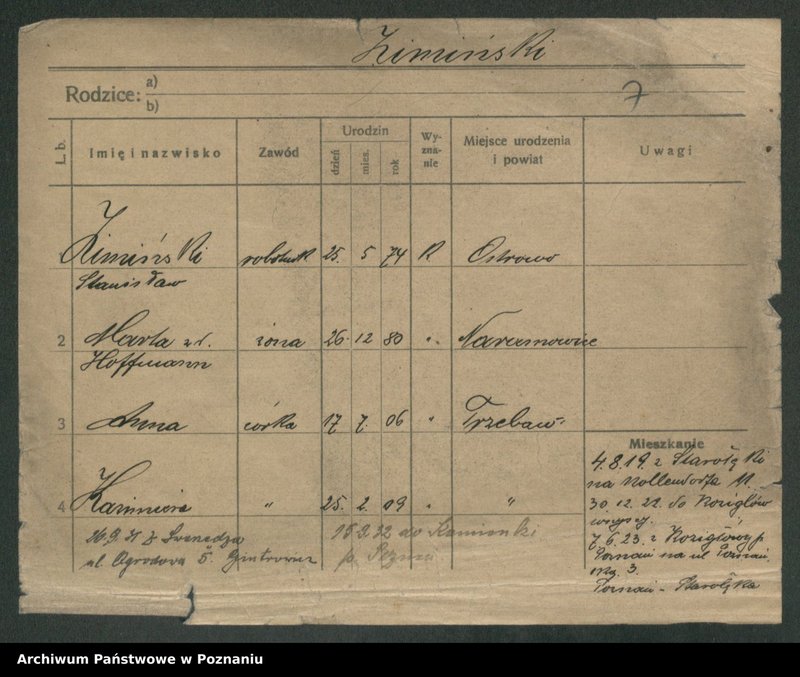 Zimiński
Rodzice: a)
b)
7
L. b.
Imię i nazwisko
Zawód
Urodzin
dzień
mies.
rok
Wy-
zna-
nie
Miejsce urodzenia
i powiat
Uwagi
Zimiński robotnik 25. 5 74 K Ostrowo
Stanisław
2 Marta żona 26. 12 80 " Naramowice
Hoffmann
3 Anna córka 17 7. 06 " Trzebaw
4 Kazimiera " 25. 2. 09 " "
Mieszkanie
4.8.19. z Starołęki
na Kollendorfa 11.
30.12.22. do Kozigłów
7.6.23. z Koziegłowy p
Poznań na ul
3.
Poznań - Starołęka
26.9.31 z
ul. Ogrodowa 5.
15.9.32 do Kamionki
p.
Archiwum Państwowe w Poznaniu